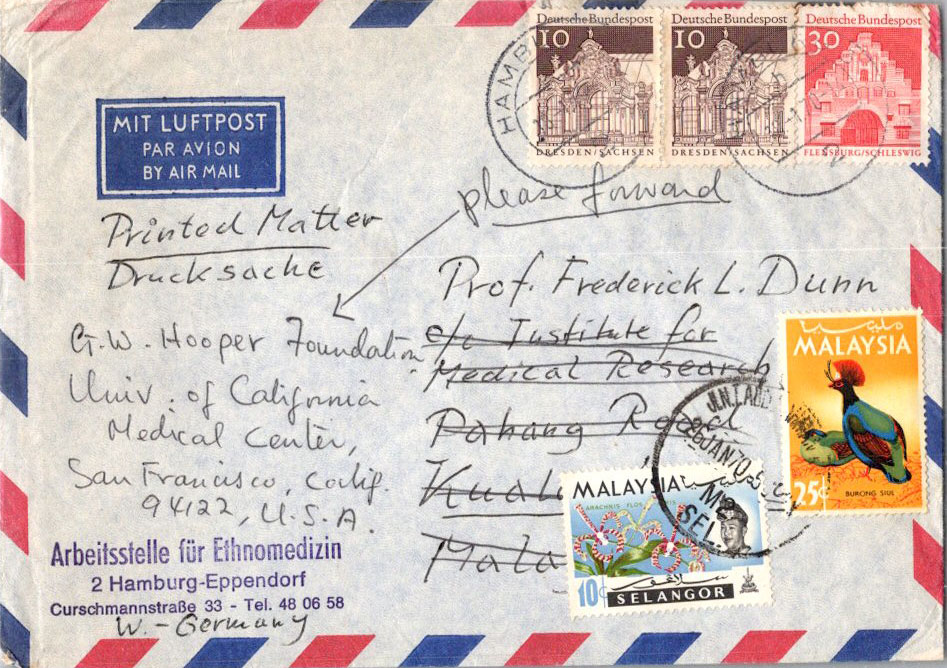 Deutsche Bundespost
10
DRESDEN/SACHSEN
Deutsche Bundespost
10
DRESDEN/SACHSEN
Deutsche Bundespost
30
FLENSBURG/SCHLESWIG
HAMB
MIT LUFTPOST
PAR AVION
BY AIR MAIL
please forward
Printed Matter
Drucksache
Prof. Frederick L. Dunn
c/o Institute for
Medical Research
Pahang Road
Kual
Mala
G.W. Hooper Foundation
Univ. of California
Medical Center,
San Francisco, Calif.
94122, U.S.A.
مليسيا
MALAYSIA
25¢
BURONG SIUL
26 JAN 70
SEL.
MALAYSIA
ARACHNIS FLOS
10¢
سلاڠور
SELANGOR
Arbeitsstelle für Ethnomedizin
2 Hamburg-Eppendorf
Curschmannstraße 33 - Tel. 48 06 58
W.-Germany